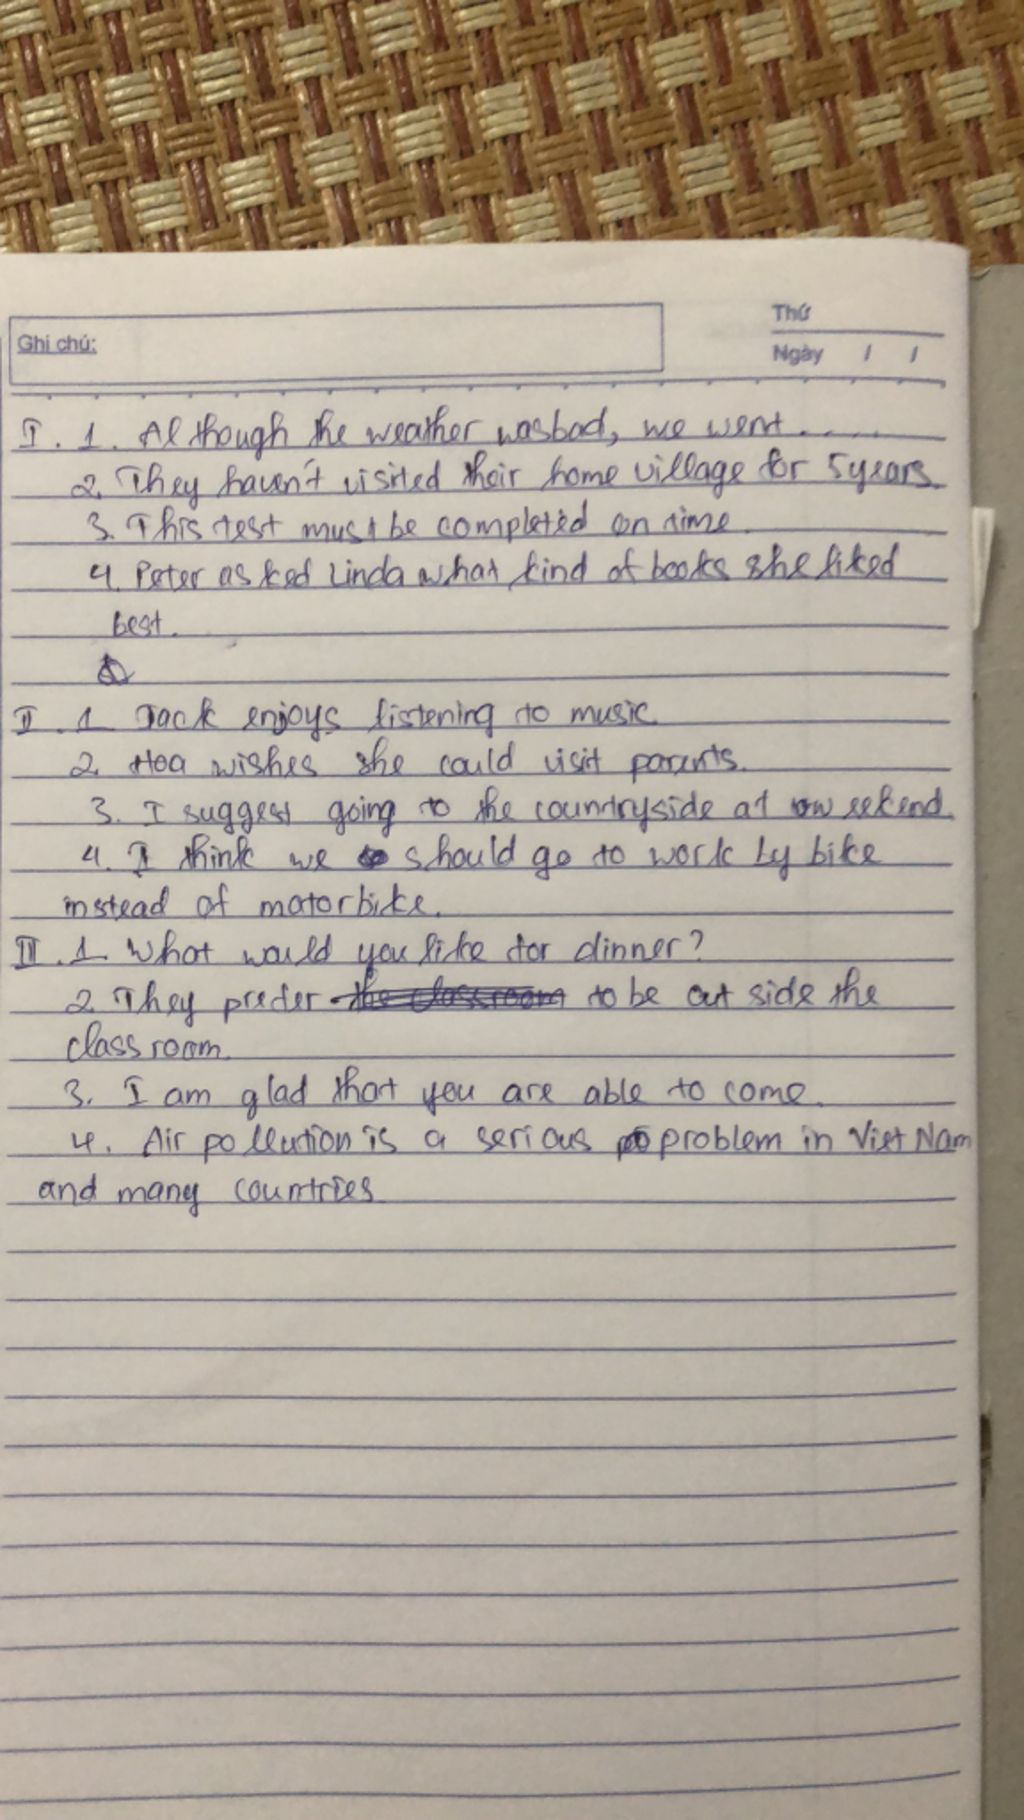 Ghi chú:
Thứ
Ngày / /
I. 1. Although the weather was bad, we went......
2. They haven't visited their home village for 5 years.
3. This test must be completed on time.
4. Peter asked Linda what kind of books she liked
best.
II. 1 Jack enjoys listening to music.
2. Hoa wishes she could visit parents.
3. I suggest going to the countryside at weekend.
4. I think we should go to work by bike
instead of motorbike.
III. 1. What would you like for dinner?
2. They prefer the classroom to be out side the
class room.
3. I am glad that you are able to come.
4. Air pollution is a serious problem in Viet Nam
and many countries